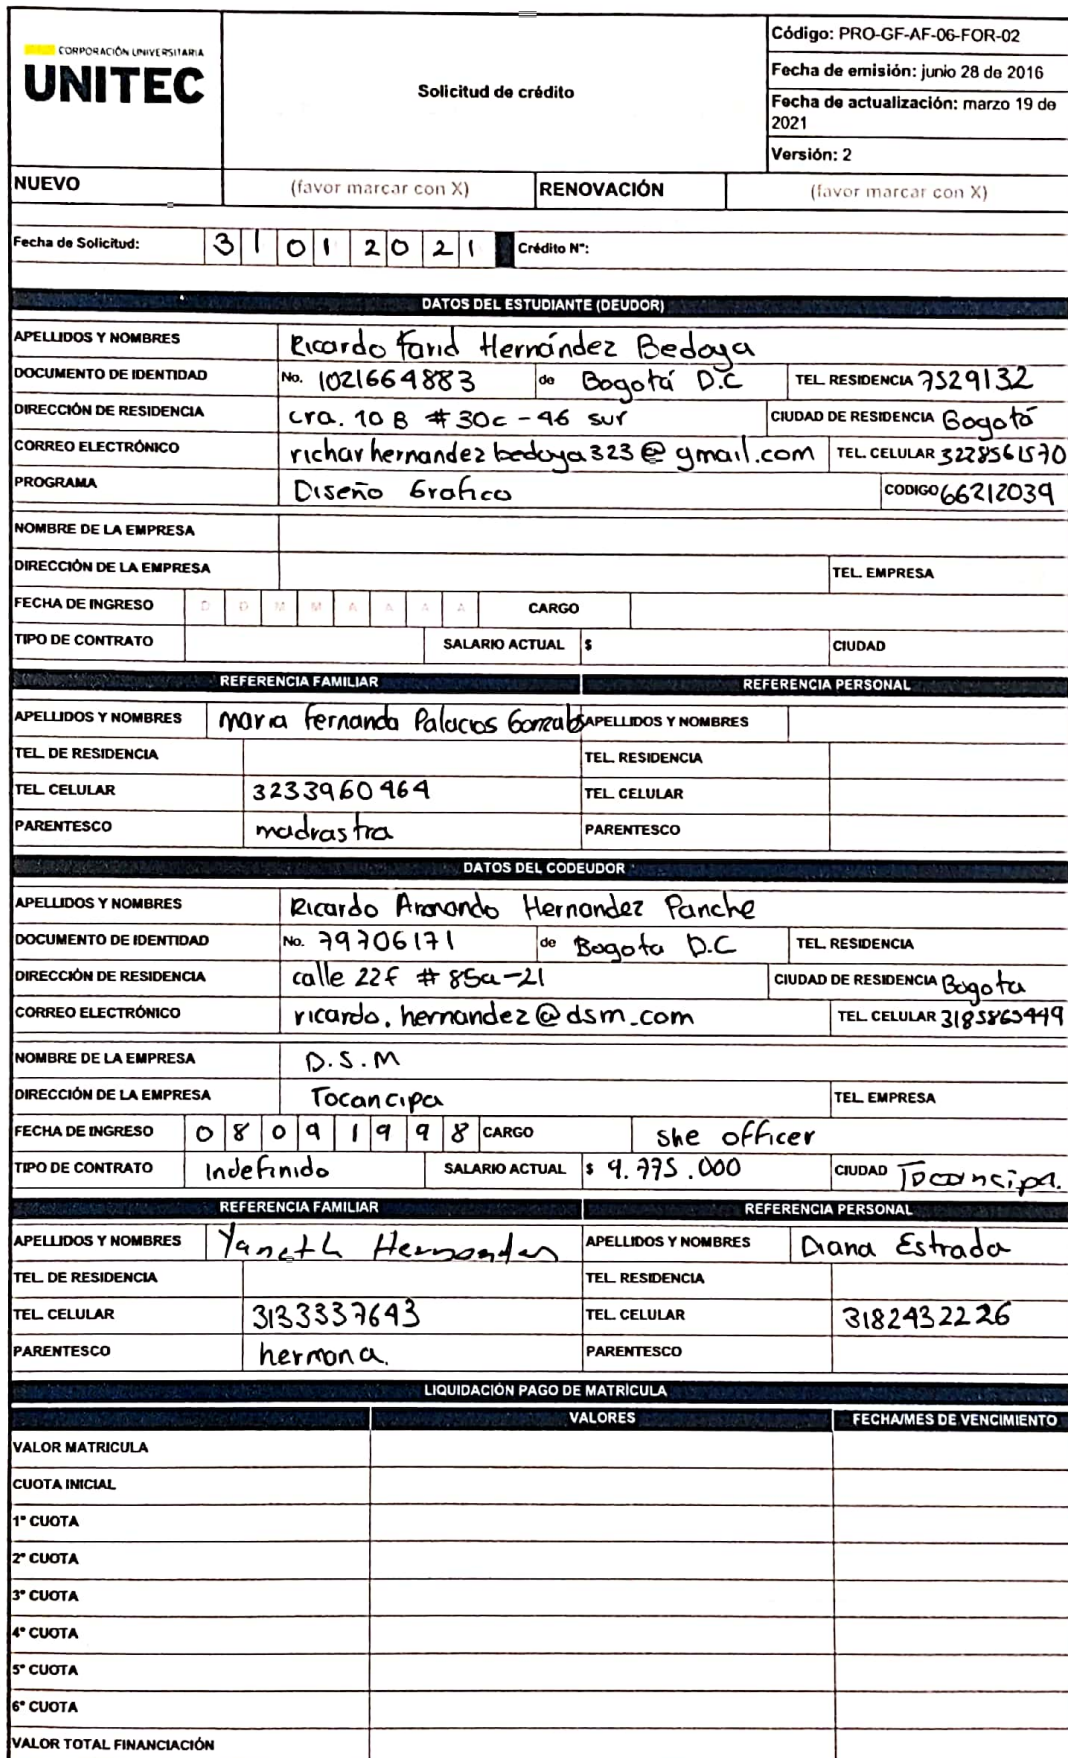 CORPORACIÓN UNIVERSITARIA
UNITEC
Solicitud de crédito
Código: PRO-GF-AF-06-FOR-02
Fecha de emisión: junio 28 de 2016
Fecha de actualización: marzo 19 de 2021
Versión: 2
NUEVO (favor marcar con X) RENOVACIÓN (favor marcar con X)
Fecha de Solicitud: 3 1 0 1 2 0 2 1 Crédito N°:
DATOS DEL ESTUDIANTE (DEUDOR)
APELLIDOS Y NOMBRES Ricardo Farid Hernández Bedoya
DOCUMENTO DE IDENTIDAD No. 1021664883 de Bogotá D.C TEL. RESIDENCIA 7529132
DIRECCIÓN DE RESIDENCIA cra. 10 B # 30c - 46 sur CIUDAD DE RESIDENCIA Bogotá
CORREO ELECTRÓNICO richarhernandezbedoya323@gmail.com TEL. CELULAR 3228561570
PROGRAMA Diseño Grafico CODIGO 66212039
NOMBRE DE LA EMPRESA
DIRECCIÓN DE LA EMPRESA TEL. EMPRESA
FECHA DE INGRESO D D M M A A A A CARGO
TIPO DE CONTRATO SALARIO ACTUAL $ CIUDAD
REFERENCIA FAMILIAR REFERENCIA PERSONAL
APELLIDOS Y NOMBRES Maria Fernanda Palacios APELLIDOS Y NOMBRES
TEL. DE RESIDENCIA TEL. RESIDENCIA
TEL. CELULAR 3233960464 TEL. CELULAR
PARENTESCO madrastra PARENTESCO
DATOS DEL CODEUDOR
APELLIDOS Y NOMBRES Ricardo Armando Hernandez Panche
DOCUMENTO DE IDENTIDAD No. 79706171 de Bogota D.C TEL. RESIDENCIA
DIRECCIÓN DE RESIDENCIA calle 22f # 85a-21 CIUDAD DE RESIDENCIA Bogota
CORREO ELECTRÓNICO ricardo.hernandez@dsm.com TEL. CELULAR
NOMBRE DE LA EMPRESA D.S.M
DIRECCIÓN DE LA EMPRESA Tocancipa TEL. EMPRESA
FECHA DE INGRESO 0 8 0 9 1 9 9 8 CARGO she officer
TIPO DE CONTRATO Indefinido SALARIO ACTUAL $ 9.775.000 CIUDAD Tocancipa.
REFERENCIA FAMILIAR REFERENCIA PERSONAL
APELLIDOS Y NOMBRES Yaneth Hernandez APELLIDOS Y NOMBRES Diana Estrada
TEL. DE RESIDENCIA TEL. RESIDENCIA
TEL. CELULAR 3133337643 TEL. CELULAR 3182432226
PARENTESCO hermana. PARENTESCO
LIQUIDACIÓN PAGO DE MATRÍCULA
VALORES FECHA/MES DE VENCIMIENTO
VALOR MATRICULA
CUOTA INICIAL
1° CUOTA
2° CUOTA
3° CUOTA
4° CUOTA
5° CUOTA
6° CUOTA
VALOR TOTAL FINANCIACIÓN